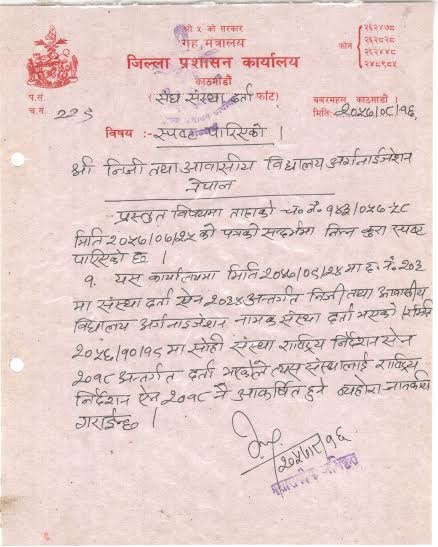 श्री ५ को सरकार
गृह मन्त्रालय
जिल्ला प्रशासन कार्यालय
काठमाडौं
(संघ संस्था दर्ता फाँट)
फोन
२६२४७८
२६२८२८
२६२४४८
२४८९८५
बबरमहल, काठमाडौं ।
प.सं.
च.नं.
मितिः २०५७/०८/१६
विषय :- स्पष्ट पारिएको ।
श्री निजी तथा आवासीय विद्यालय अर्गनाईजेशन
नेपाल
प्रस्तुत विषयमा ताहाको च.नं. १४३/०५७-५८
मिति २०५७/०७/२५ को पत्रको सन्दर्भमा निम्न कुरा स्पष्ट
पारिएको छ ।
१. यस कार्यालयमा मिति २०४७/०९/२४ मा द.नं. २०३
मा संस्था दर्ता ऐन २०३४ अन्तर्गत निजी तथा आवासीय
विद्यालय अर्गनाइजेशन नामक संस्था दर्ता भएको र मिति
२०५६/१०/१८ मा सोही संस्था राष्ट्रिय निर्देशन ऐन
२०१८ अन्तर्गत दर्ता भएकोले त्यस संस्थालाई राष्ट्रिय
निर्देशन ऐन २०१८ नै आकर्षित हुने व्यहोरा जानकारी
गराईन्छ ।
प्रशासकीय अधिकृत